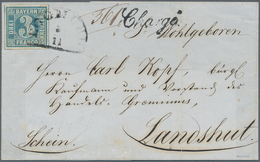 BAYERN
3
DREI
11
Chargé.
Wohlgeboren
Herren Carl Kopf, bürgl.
Kaufmann und Vorstand des
Handels-Gremiums,
Schein.
Landshut.